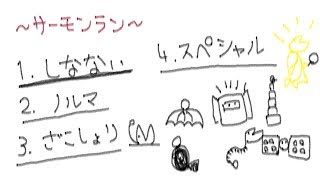 ～サーモンラン～
1. しなない
2. ノルマ
3. ざこしょり
4. スペシャル